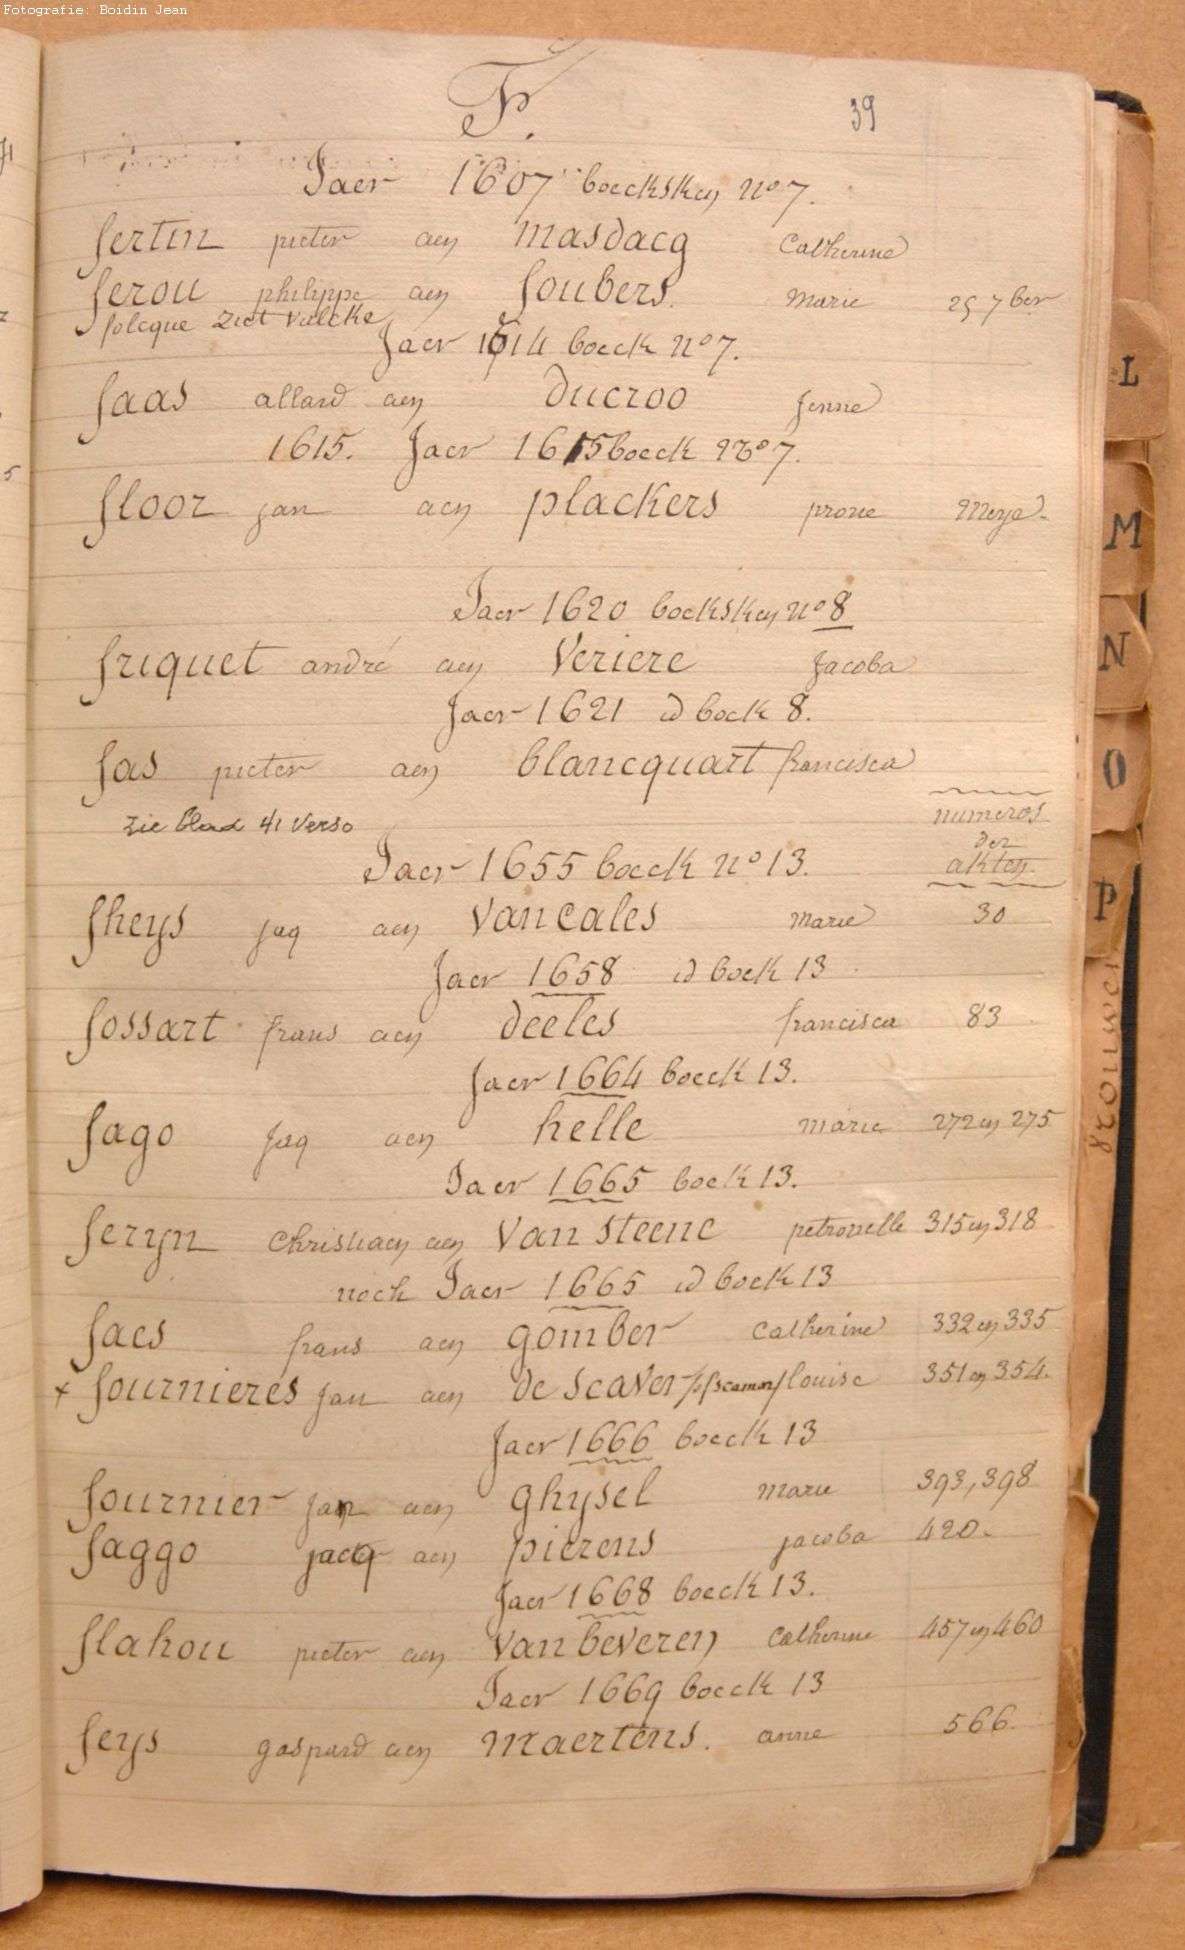 Fotografie: Boidin Jean
F.
39
Jaer 1607 boeckskey no 7.
fertin pieter aen masdacq Catherine
ferou philippe aen foubers. Marie 25 7ber
folcque ziet Valcke
Jaer 1614 boeck no 7.
faas allard aen ducroo Jenne
1615. Jaer 1615 boeck No 7.
floor jan aen plackers prone Meye.
Jaer 1620 boekskey no 8
friquet andré aen Veriere Jacoba
Jaer 1621 id boek 8.
fas pieter aen blancquart francisca
zie blad 41 verso
numeros
der
akten.
Jaer 1655 boeck no 13.
fheys jaq aen Vancales Marie 30
Jaer 1658 id boek 13
fossart frans aen deeles francisca 83
Jaer 1664 boeck 13.
fago jaq aen helle marie 272 en 275
Jaer 1665 boek 13.
feryn Christiaen aen Van steene petronelle 315 en 318
noch Jaer 1665 id boek 13
faes frans aen gomber Catherine 332 en 335
x fournieres Jan aen de scaver louise 351 en 354.
Jaer 1666 boeck 13
fournier Jan aen ghysel Marie 393, 398
faggo jacq aen pierens jacoba 420.
Jaer 1668 boeck 13.
flahou pieter aen Van beveren Catherine 457 en 460
Jaer 1669 boeck 13
feys gaspard aen maertens. anne 566.
L
M
N
O
P